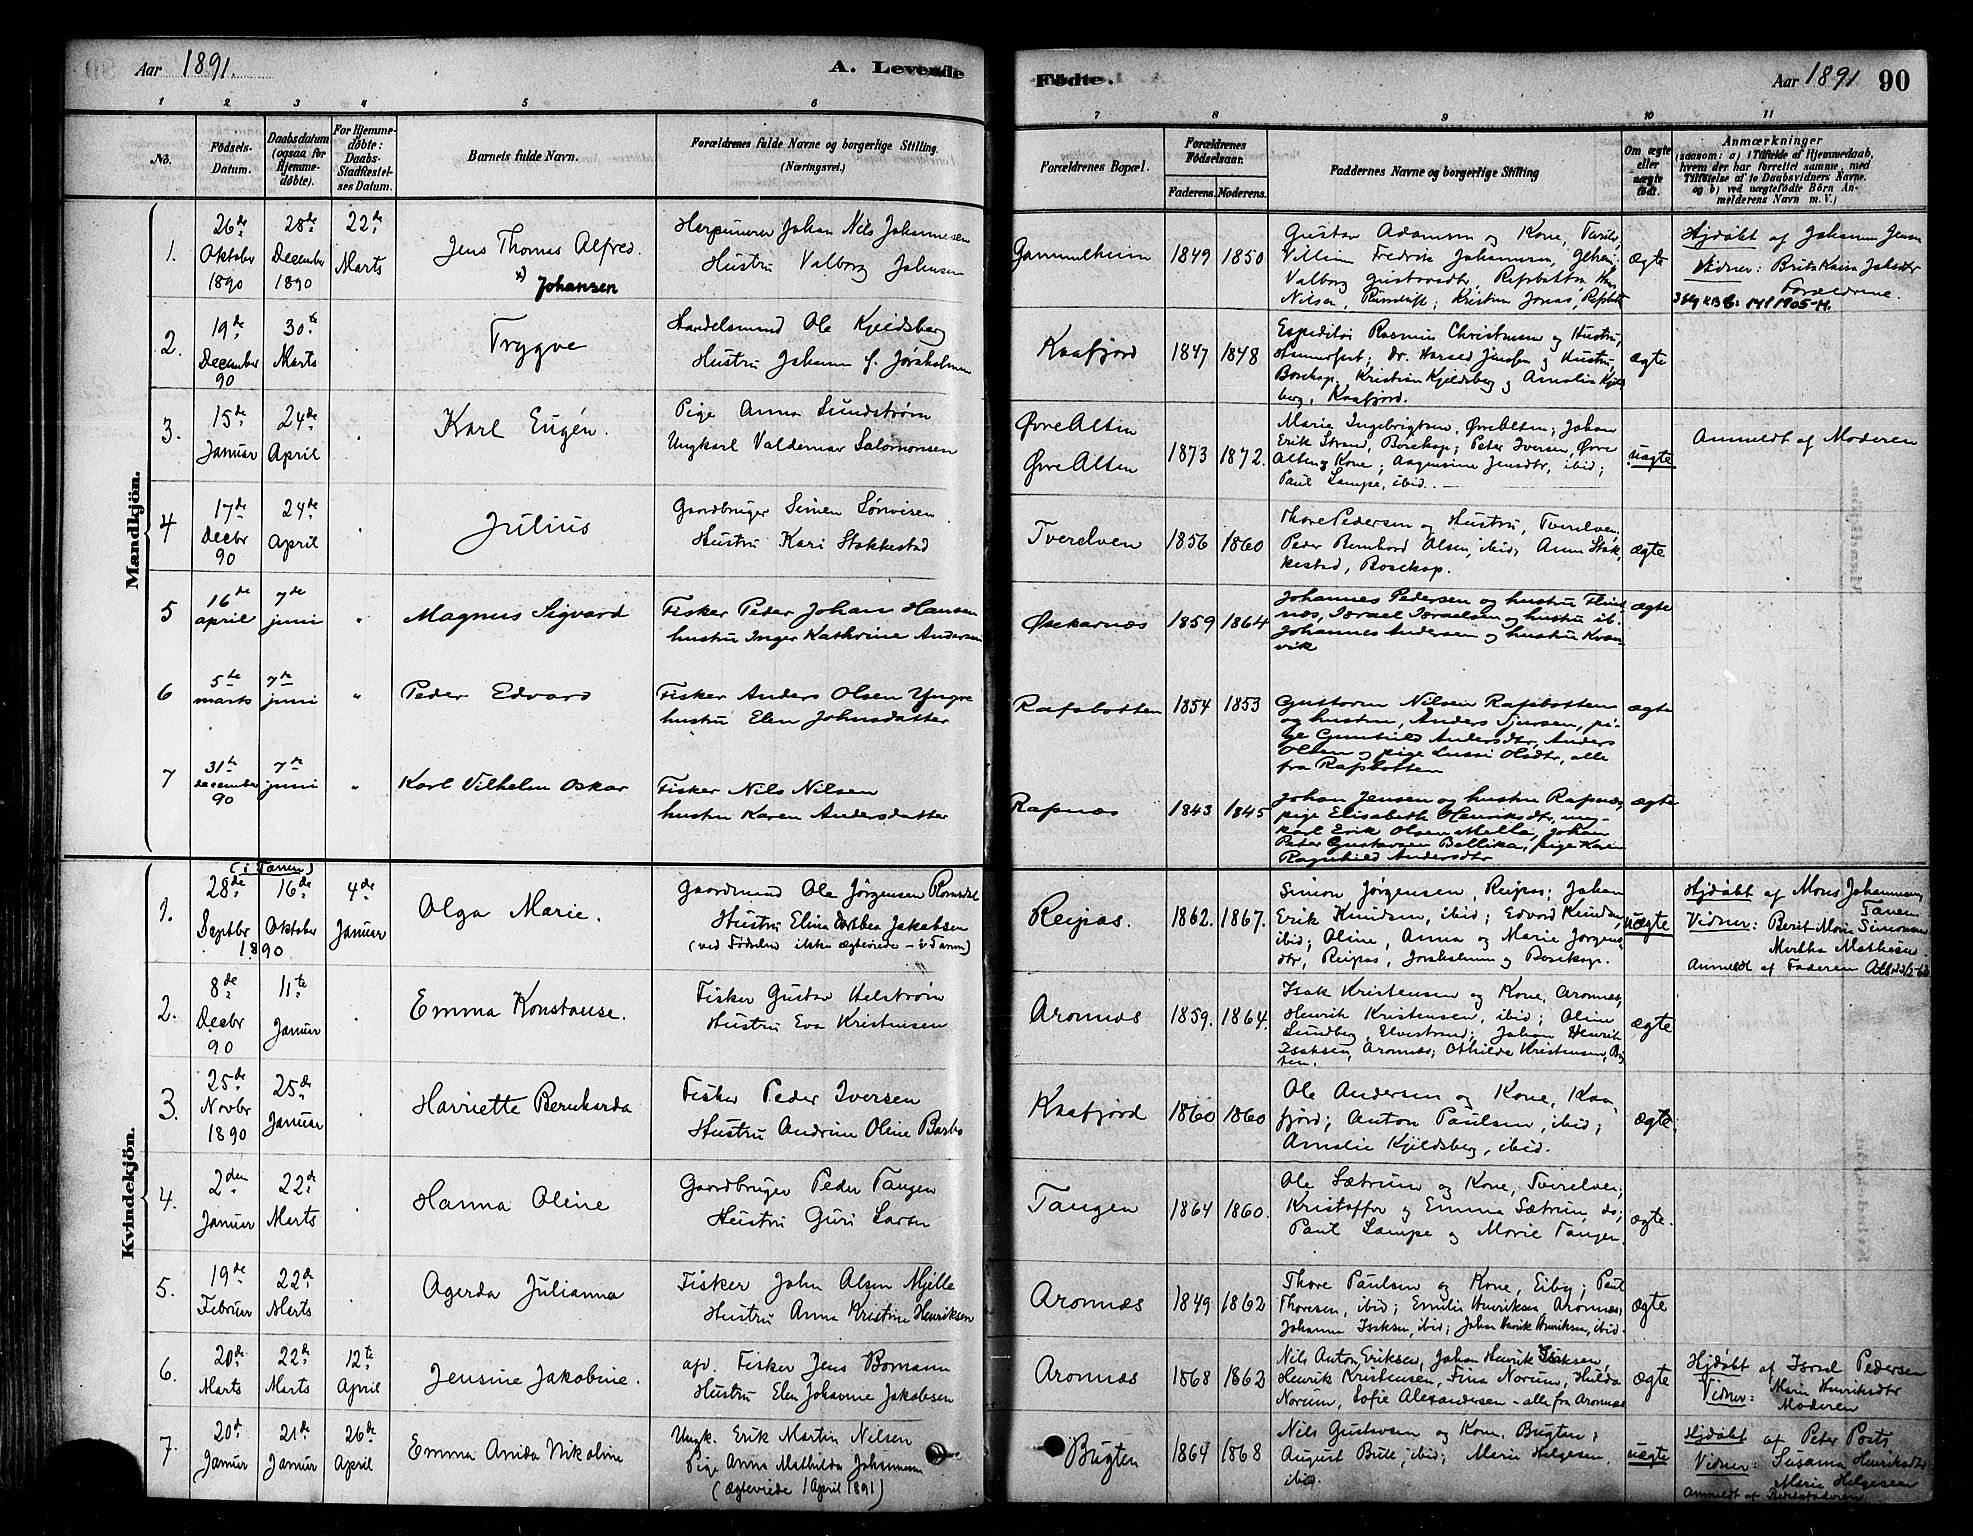 Aar 1891. A. Levende
1 2 3 4 5 6
No. Fødsels-Datum. Daabsdatum (ogsaa for Hjemmedøbte). For Hjemmedøbte: Daabs-Stadfæstelses Datum. Barnets fulde Navn. Forældrenes fulde Navne og borgerlige Stilling. (Næringsvei.)
Mandkjön.
1. 26de Oktober 1890 28de December 1890 22de Marts Jens Thomas Alfred. x) Johansen
Harpunerer Johan Nils Johannesen
Hustru Valborg Johnsen
2. 19de December 90 30te Marts Trygve
Handelsmand Ole Kjeldsberg
Hustru Johanne f. Jørsholmen
3. 15de Januar 24de April Karl Eugén.
Pige Anna Lundstrøm
Ungkarl Valdemar Salomonsen
4 17de Decbr 90 24de April Julius
Gaardbruger Simen Sørvisen
Hustru Kari Stokkestad
5 16de april 7de juni " Magnus Sigvard
Fisker Peder Johan Hansen
hustru Inger Kathrine Andersen
6 5te marts 7de juni " Peder Edvard
Fisker Anders Olsen Yngve
hustru Elen Johnsdatter
7 31te december 90 7de juni " Karl Vilhelm Oskar
Fisker Nils Nilsen
hustru Karen Andersdatter
Kvindekjön.
(i Tanen)
1. 28de Septbr 16de Oktober 1890 4de Januar Olga Marie.
Gaardmand Ole Jørgensen Romsdal
Hustru Elina Jakobsen
(ved Fødselen ikke ægteviede – i Tanen)
2. 8de Decbr 90 11te Januar Emma Konstanse.
Fisker Gustav Helstrøm
Hustru Eva Kristensen
3. 25de Novbr 1890 25de Januar Harriette Bernharda
Fisker Peder Iversen
Hustru Andrine Oline Barbo
4. 2den Januar 22de Marts Hanna Oline
Gaardbruger Peder Tangen
Hustru Guri Larsen
5. 19de Februar 22de Marts Agerda Julianna
Fisker John Olsen Mjelle
Hustru Anna Kristine Henriksen
6. 20de Marts 22de Marts 12te April Jensine Jakobine.
afd. Fisker Jens Bomann
Hustru Elen Johanne Jakobsen
7. 20de Januar 21de Januar 26de April Emma Anida Nikoline
Ungk. Erik Martin Nilsen
Pige Anne Mathilda Johannesen
(ægteviede 1 April 1891)
Fødte. Aar 1891 90
7 8 9 10 11
Forældrenes Bopæl. Forældrenes Fødselsaar. Faderens. Moderens. Faddernes Navne og borgerlige Stilling Om ægte eller uægte født. Anmærkninger (saasom: a) i Tilfælde af Hjemmedaab, hvem der har forrettet samme, med Tilføielse af to Daabsvidners Navne. og b) ved uægtefødte Børn Anmelderens Navn m. V.)
Gammelheim 1849 1850
Gustav Adamsen og Kone,
Fredrik Johannesen,
Valborg Gustavsdtr, Rafsbotten
Nilsen, Kristian Jonas, Rafsb
ægte
Hjdøbt af Johannes Jensen
Vidner: Brita Kaisa Jakobsdtr
Forældrene.
Kaafjord 1847 1848
Expeditør Rasmus Christensen og Hustru,
Hammerfest; Dr. Harald Jensen og Hustru,
Bosekop. Kristian Kjeldsberg og Amalie Kjelds
berg, Kaafjord.
ægte
Øvre Alten
Øvre Alten 1873 1872.
Marie Ingebrigtsen, ØvreAlten; Johan
Erik Strand, Bosekop; Peter Iversen, Øvre
Alten og Kone; Aagensine Jensdtr, ibid;
Paul Lampe, ibid. —
uægte
Anmeldt af Moderen
Tverelven 1856 1860
Thore Pedersen og Hustru, Tverelven,
Peder Bernhard Olsen, ibid; Anne Stok
kestad, Bosekop.
ægte
Øskarnæs 1859 1864
Johannes Pedersen og hustru Flint
næs, Israel Israelsen og hustru ib.
Johannes Andersen og hustru Kvæn
vik
ægte
Rafsbotten 1854 1853
Gustaven Nilsen Rafsbotten
og hustru, Anders Sjursen, pi-
ge Gunhild Andersdtr, Anders
Olsen og pige Lussi Olsdtr, alle
fra Rafsbotten
ægte
Rafsnæs 1843 1845
Johan Jensen og hustru Rafsnæs,
pige Elisabeth Henriksdtr, ung-
karl Erik Olsen Mella, Johan
Peter Gustavsen Bellika, pige Karen
Ragnhild Andersdtr
ægte
Reipas. 1862. 1867.
Simon Jørgensen, Reipas; Johan
Erik Knudsen, ibid; Edvard Knudsen,
ibid; Oline, Anna og Marie Jørgens
dtr, Reipas, Jørsholmen og Bosekop.
uægte
Hjdøbt af Mons Johannesen
Tanen
Vidner: Berit Marie Simonsen
Martha Mathisen
Anmeldt af Faderen
Aronnæs 1859. 1864.
Isak Kristensen og Kone, Aronnæs,
Henrik Kristensen, ibid; Oline
Lundberg, Elvestrand; Johan Henrik
Isaksen, Aronnæs; Othilde Kristensen, Bug
ten.
ægte
Kaafjord 1860 1860
Ole Andersen og Kone, Kaa
fjord; Anton Paulsen, ibid;
Amalie Kjeldsberg, ibid.
ægte.
Tangen 1864 1860.
Ole Sætrum og Kone, Tverelven;
Kristoffer og Emma Sætrum, do;
Paul Lampe og Marie Tangen.
ægte.
Aronnæs 1849 1862
Thore Paulsen og Kone, Eiby; Paul
Thoresen, ibid; Emilie Henriksen, Aronnæs;
Johanne Isaksen, ibid; Johan Henrik Henriksen, ibid.
ægte
Aronnæs 1868 1862
Nils Anton Eriksen, Johan Henrik Isaksen,
Henrik Kristensen, Fina Norum, Hulda
Norum, Sofie Alexandersen – alle fra Aronnæs
ægte
Hjdøbt af Israel Pedersen
Vidner: Marie Henriksdtr
Moderen
Bugten 1864 1868
Nils Gustavsen og Kone, Bugten;
August Bull, ibid; Marie Helgesen,
ibid.
uægte
Hjdøbt af Peter Posti
Vidner: Susanna Henriksdtr
Marie Helgesen
Anmeldt af Barnefaderen